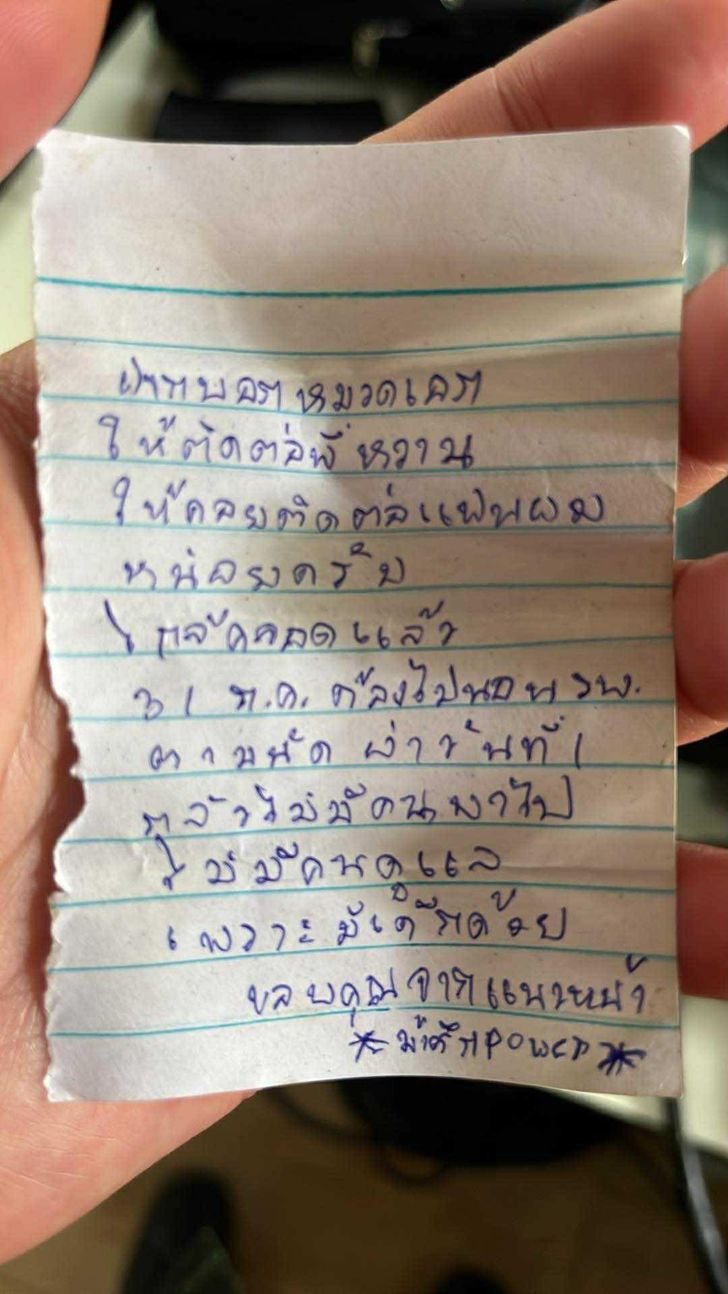 ฝากบอกหมวดเอก
ให้ติดต่อพี่หวาน
ให้คอยติดต่อแฟนผม
หน่อยครับ
ใกล้คลอดแล้ว
31 ก.ค. ต้องไปนอน รพ.
ตามนัด ผ่าวันที่ 1
กลัวไม่มีคนพาไป
ไม่มีคนดูแล
เพราะมีเด็กด้วย
ขอบคุณจาก
POWER